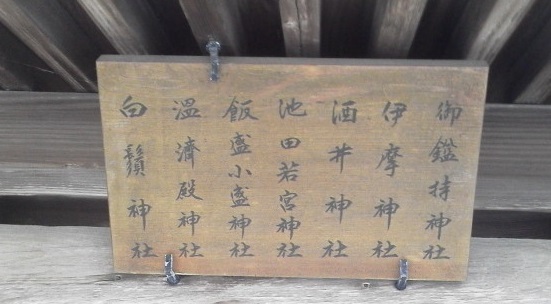 御鑑持神社
伊摩神社
酒井神社
池田若宮神社
飯盛小盛神社
温濟殿神社
白鬚神社